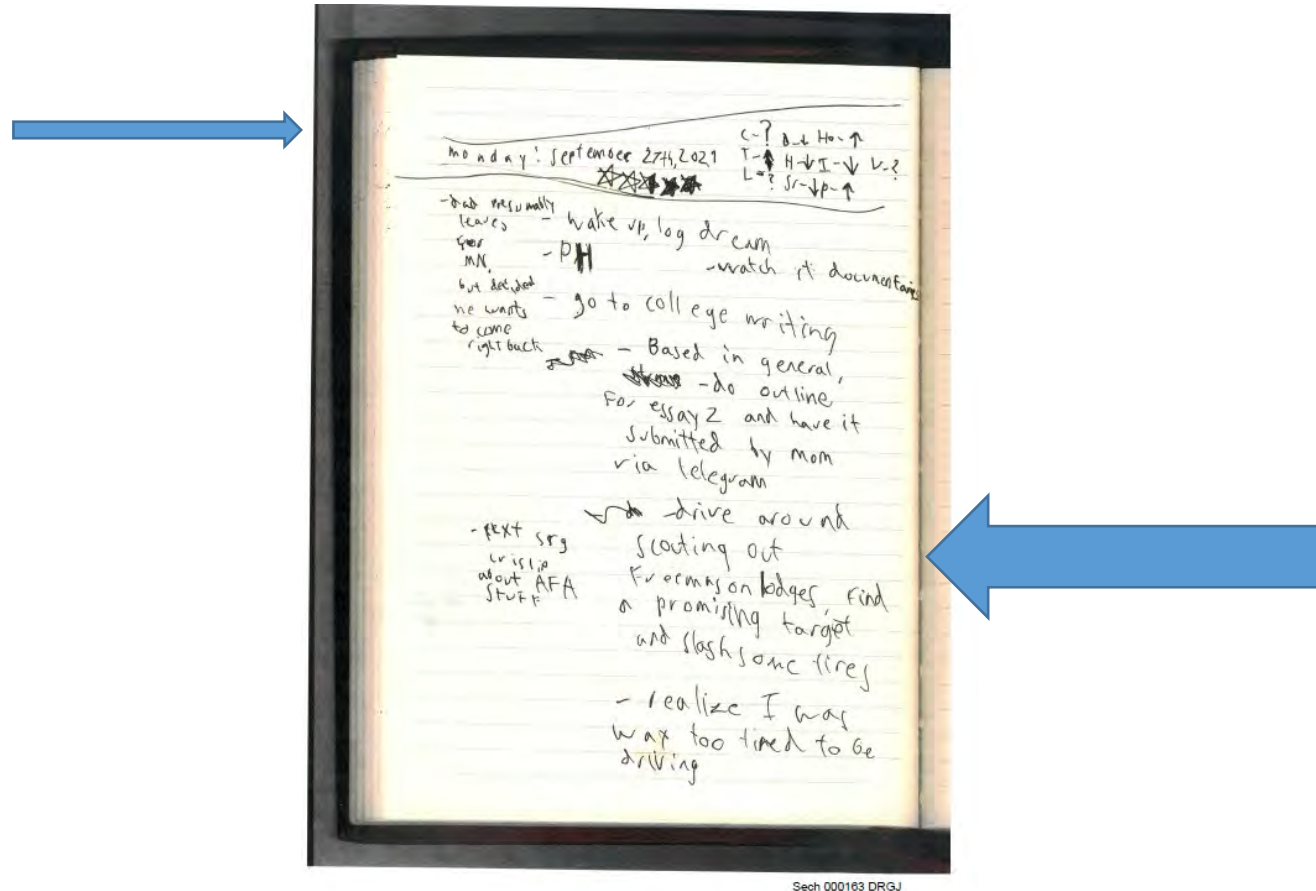 monday: September 27th, 2021
C-? B-↓ Ho-↑
T-↑ H-↓ I-↓ V-?
L-? Sr-↓ p-↑
-dad presumally
leaves
for
MN,
but decided
he wants
to come
right back
- wake up, log dream
- PH
-watch pt documentaries
- go to college writing
- Based in general,
-do outline
For essay 2 and have it
submitted by mom
via telegram
-drive around
scouting out
Freemason lodges, find
a promising target
and slash some tires
-text srg
crislip
about AFA
stuff
- realize I was
way too tired to be
driving
Sech 000163 DRGJ